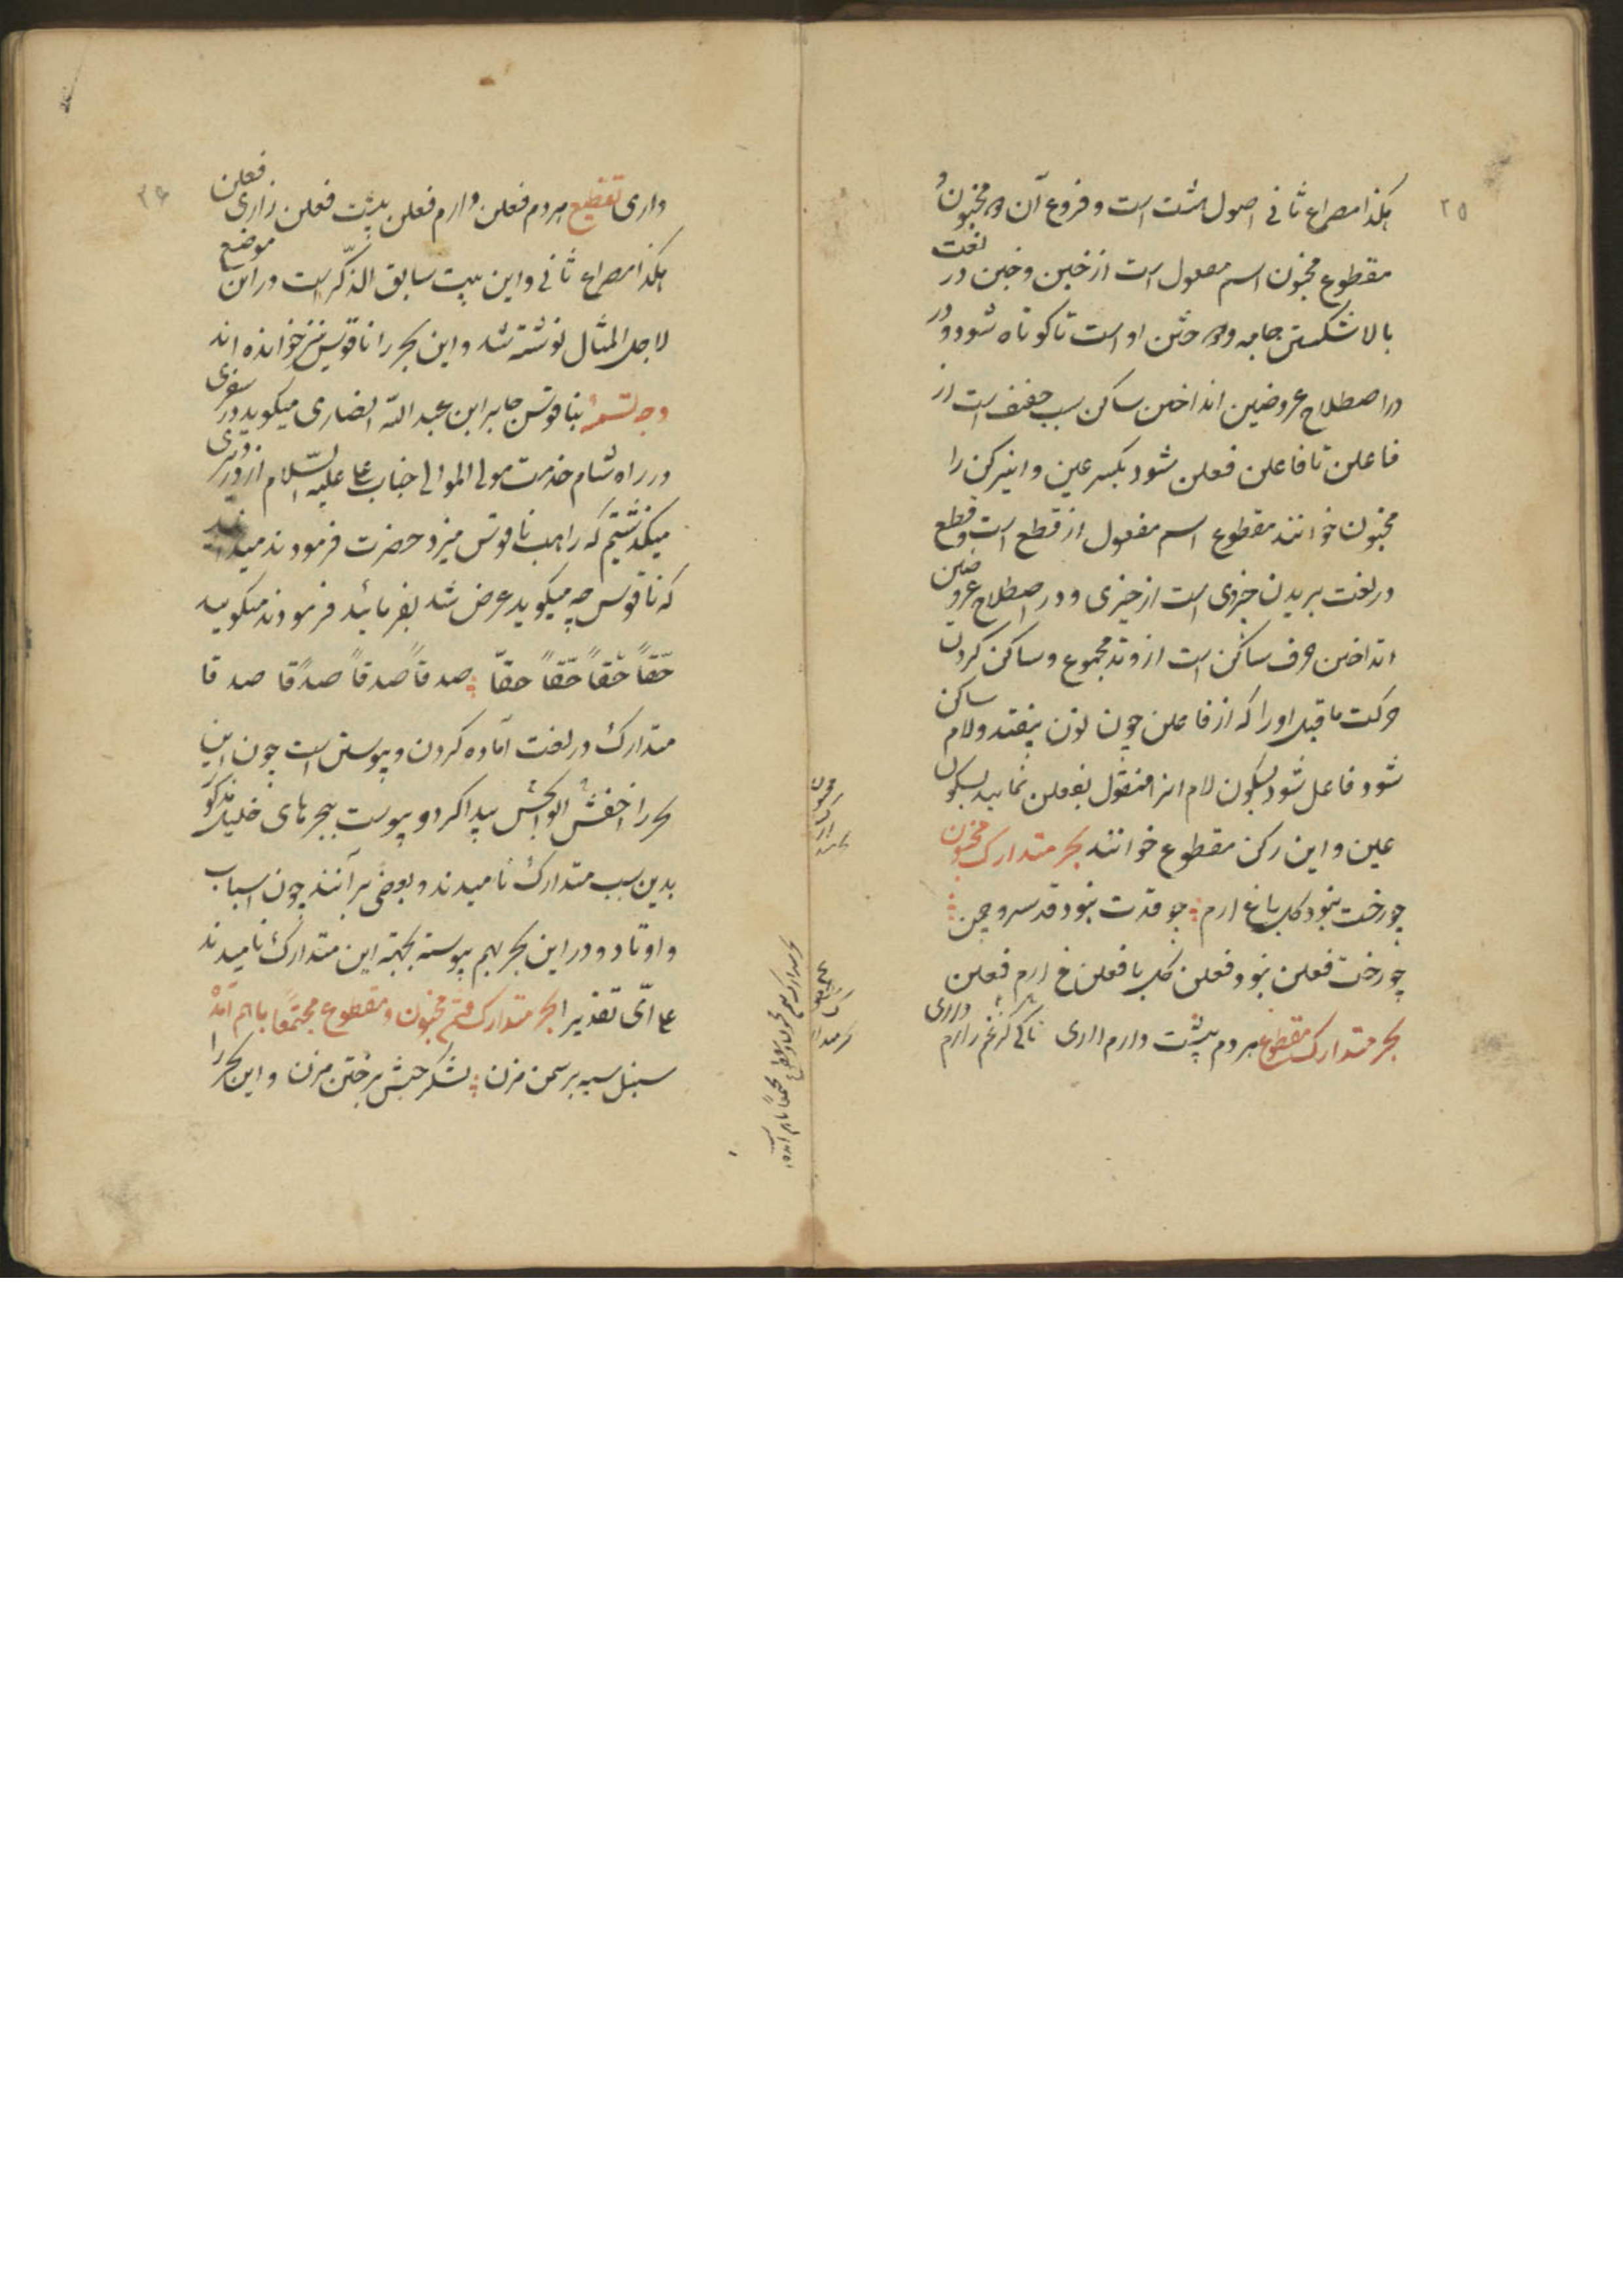 ۲۵
هکذا مصراع ثانی اصول هشت است و فروع آن مخبون و
مقطوع مخبون اسم مفعول است از خبن و خبن در لغت
بالا شکستن جامه و دوختن او است تا کوتاه شود و در
در اصطلاح عروضیین انداختن ساکن سبب خفیف است از
فاعلن تا فاعلن فعلن شود بکسر عین و اینرکن را
مخبون خوانند مقطوع اسم مفعول از قطع است و قطع
در لغت بریدن جزوی است از چیزی و در اصطلاح عروضین
انداختن حرف ساکن است از وتد مجموع و ساکن کردن
حرکت ماقبل او را که از فاعلن چون نون بیفتد و لام ساکن
شود فاعل شود بسکون لام انرا منقول بفعلن نمایید بسکون
عین و این رکن مقطوع خوانند بحر متدارک مخبون
چو رخت نبود گل باغ ارم چو قدت نبود قد سرو چمن
چو رخت فعلن نبود فعلن گل با فعلن غ ارم فعلن
بحر متدارک مقطوع هر دم پیشت دارم زاری تا کی
۲۶
داری تقطیع هر دم فعلن دارم فعلن پیشت فعلن زاری فعلن
هکذا مصراع ثانی و این بیت سابق الذکر است در این موضع
لاجل المثال نوشته شد و این بحر را ناقوس نیز خوانده اند
وجه تسمیه بناقوس جابر ابن عبد الله انصاری میگوید در سفری
در راه شام خدمت مولی الموالی جناب علی علیه السلام از دیری
میگذشتیم که راهب ناقوس میزد حضرت فرمودند میدانید
که ناقوس چه میگوید عرض شد بفرمائید فرمودند میگوید
حقاً حقاً حقاً حقاً صدقاً صدقاً صدقا صدقا
متدارک در لغت آماده کردن و پیوستن است چون این
بحر را اخفش ابو الحسن پیدا کرد و پیوست ببحرهای خلیل مذکور
بدین سبب متدارک نامیدند و بعضی برآنند چون اسباب
و اوتاد در این بحر بهم پیوسته بجهته این متدارک نامیدند
علی ای تقدیر بحر متدارک مخبون و مقطوع مجتمعاً باهم آمده
سنبل سیه بر سمن مزن لشکر حبش بر ختن مزن و این بحر را